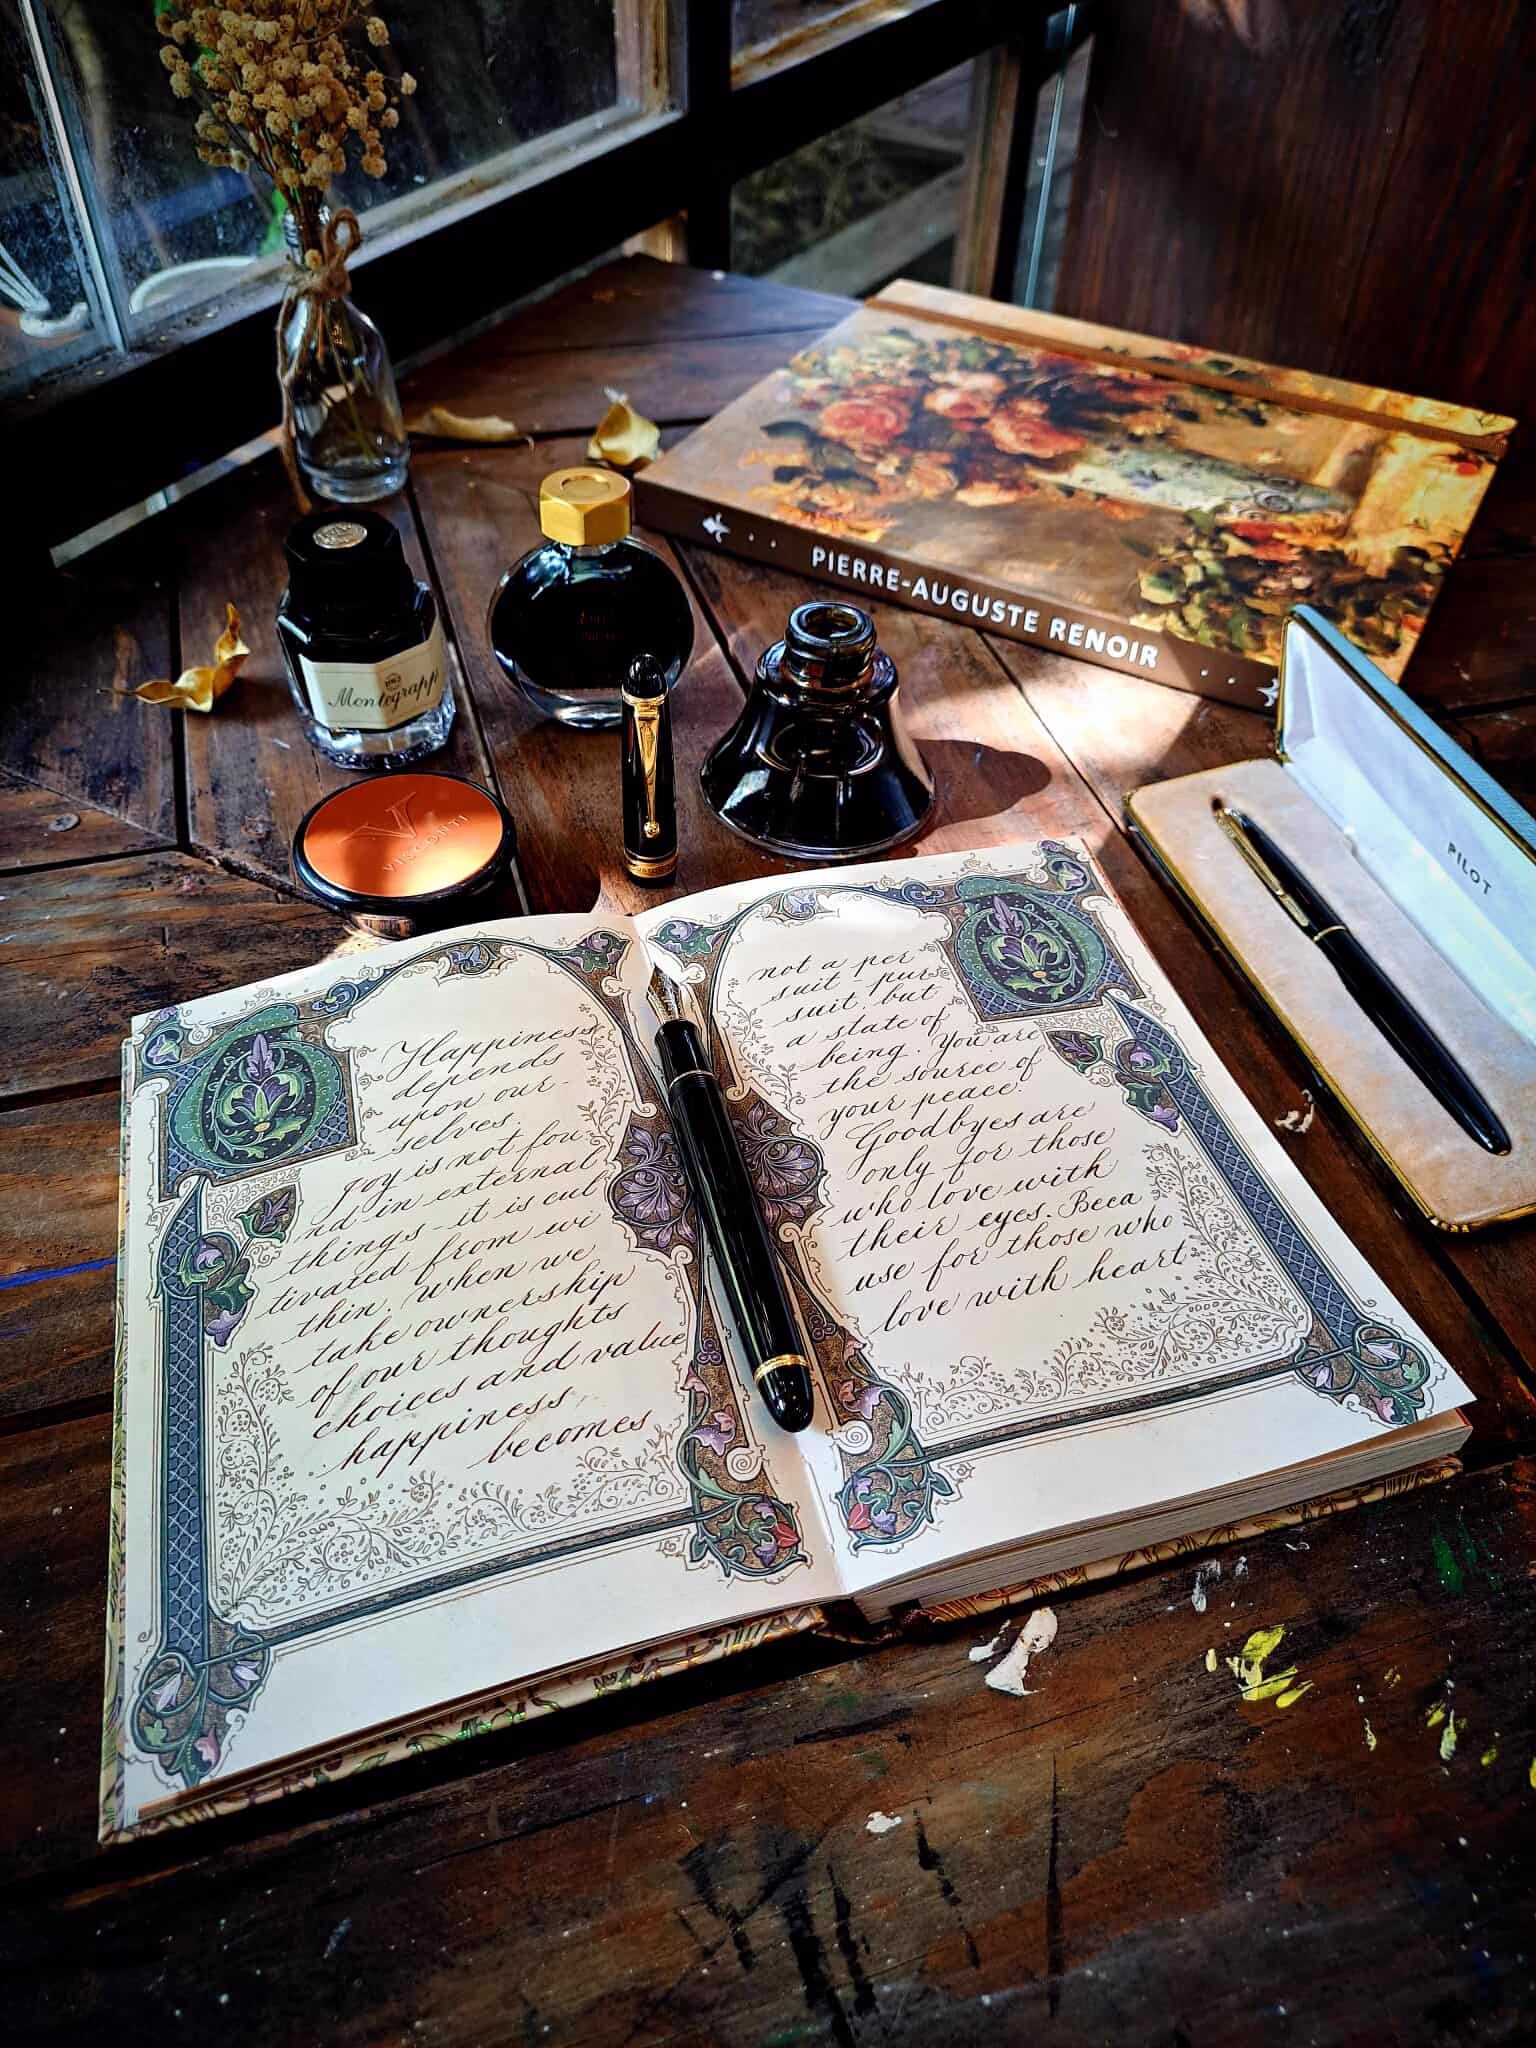 PIERRE-AUGUSTE RENOIR
Montegrappa
V
VISCONTI
PILOT
Happiness
depends
upon our-
selves.
Joy is not fou-
nd in external
things - it is cul
tivated from wi
thin. When we
take ownership
of our thoughts
choices and value
happiness
becomes
not a per
suit - purs
suit, but
a state of
being. You are
the source of
your peace.
Goodbyes are
only for those
who love with
their eyes. Beca
use for those who
love with heart